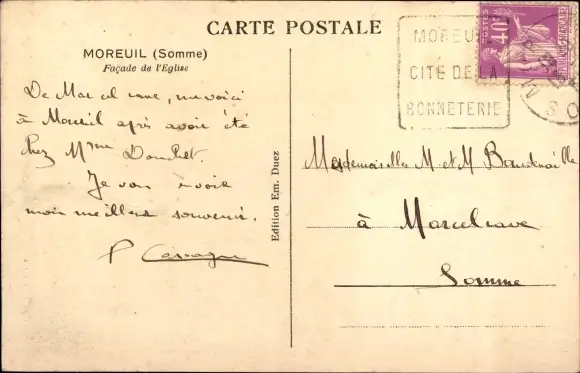 CARTE POSTALE
MOREUIL (Somme)
Façade de l'Eglise
De Marcelcave, me voici
à Moreuil après avoir été
chez Mme
Je vous envoie
mon meilleur souvenir.
P
Edition Em. Duez
MOREUIL
CITÉ DE LA
BONNETERIE
POSTES
40c
Mesdemoiselles M et M
à Marcelcave
Somme